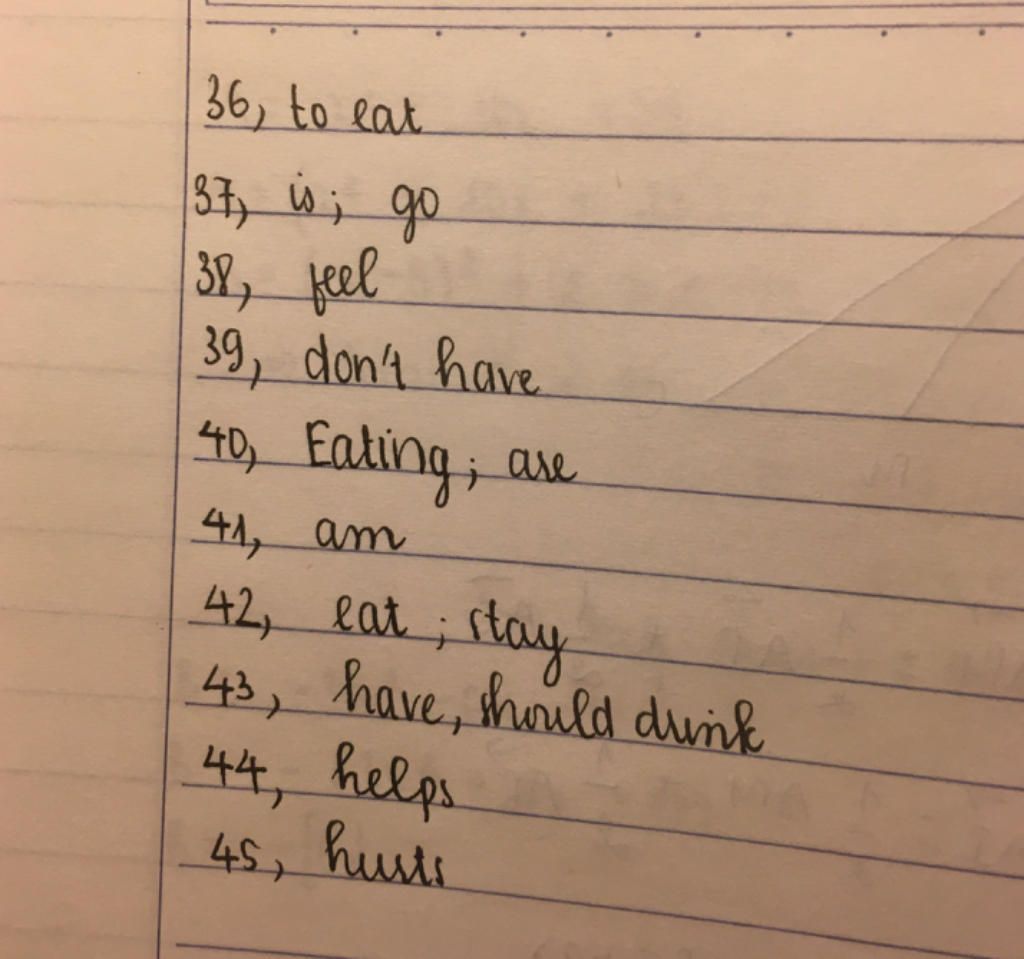 36, to eat
37, is; go
38, feel
39, don't have
40, Eating; are
41, am
42, eat; stay
43, have, should drink
44, helps
45, hurts